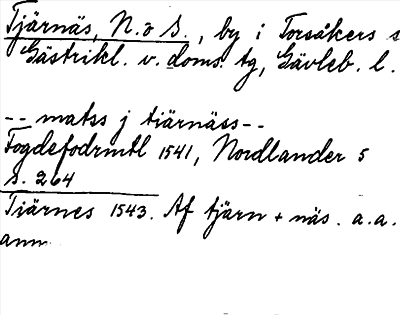 Tjärnäs, N. o S., by i Torsåkers s
Gästrikl. v. doms. tg, Gävleb. l.
-- matss j tiärnäss--
Fogdefodrmtl 1541, Nordlander 5
s. 264
Tiärnes 1543. Af tjärn + näs. a.a.
anm.